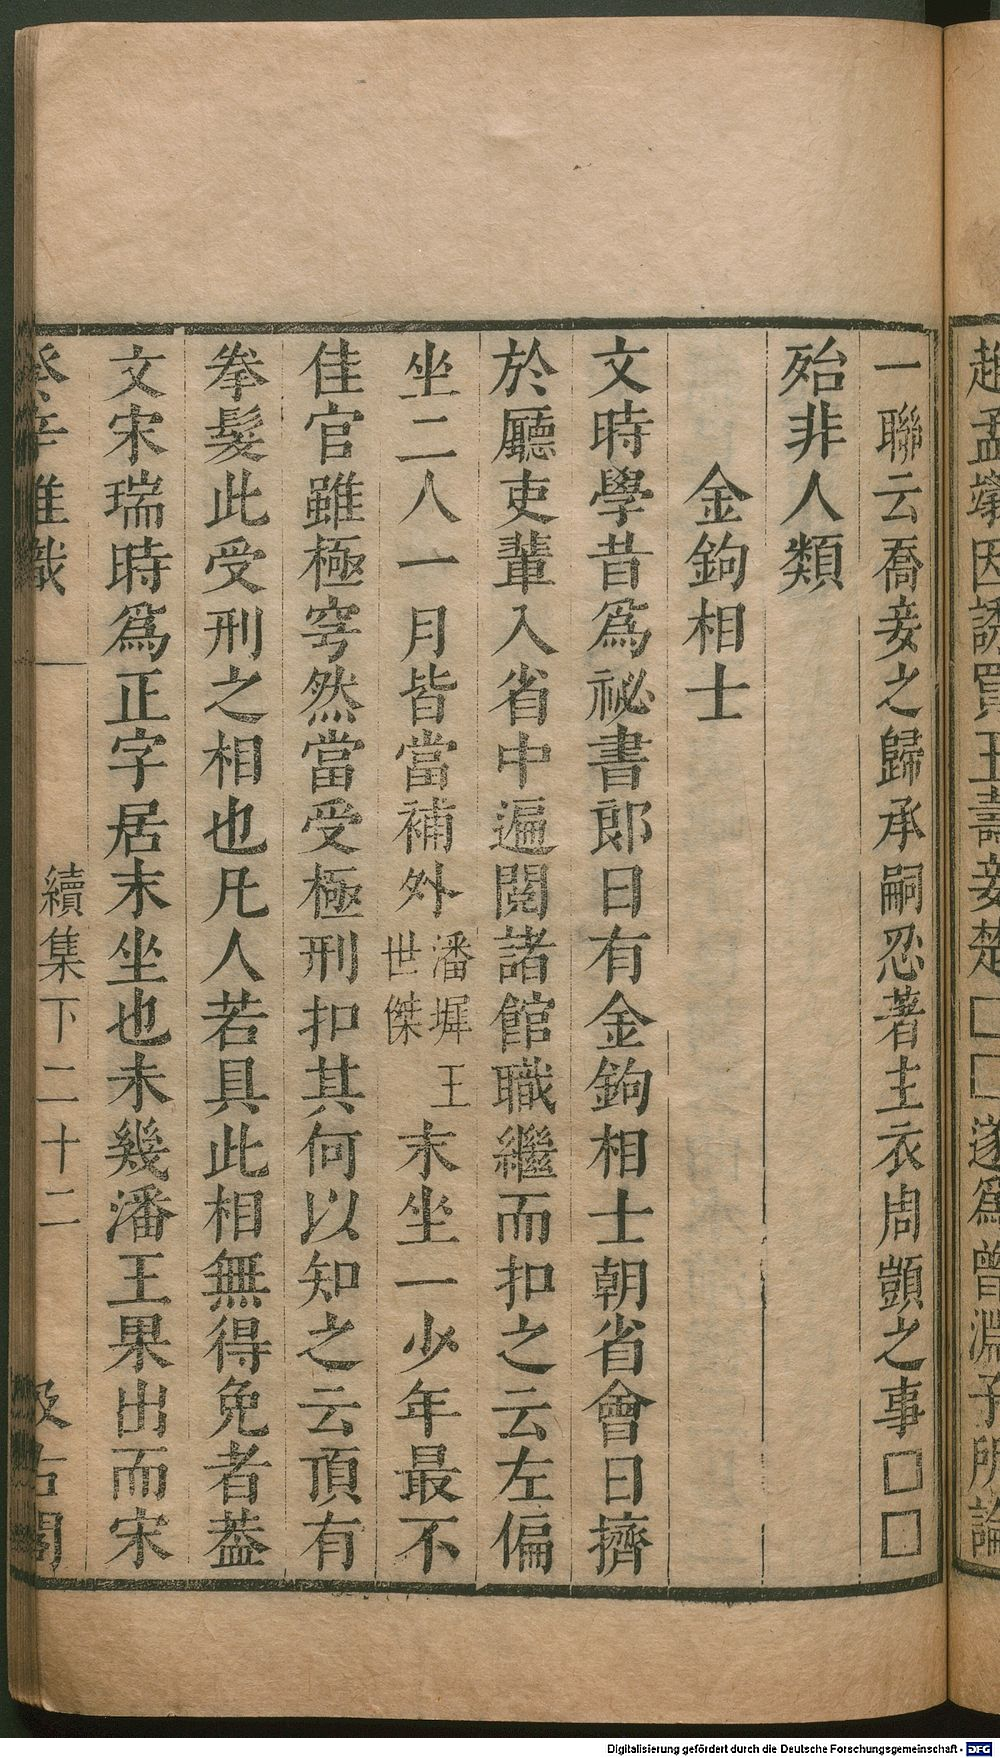 趙孟 因 買王 妾楚□□遂爲曾淵子所論
一聯云喬妾之歸承嗣忍著主衣周顗之事□□
殆非人類
金鉤相士
文時學昔爲祕書郎日有金鉤相士朝省會日擠
於廳吏輩入省中遍閱諸館職繼而扣之云左偏
坐二八一月皆當補外潘墀王世傑末坐一少年最不
佳官雖極穹然當受極刑扣其何以知之云頂有
拳髮此受刑之相也凡人若具此相無得免者葢
文宋瑞時爲正字居末坐也未幾潘王果出而宋
癸辛雜識 續集下二十二 汲古閣
Digitalisierung gefördert durch die Deutsche Forschungsgemeinschaft - DFG